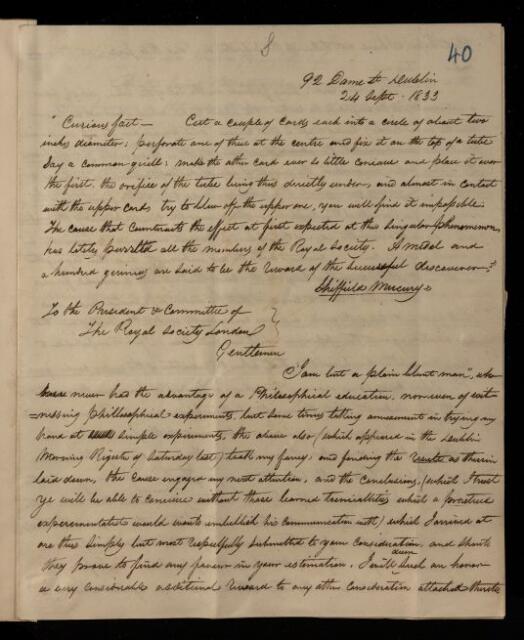 8
40
92 Dame St Dublin
24 Sept. 1833
"Curious fact — Cut a couple of cards each into a circle of about two
inches diameter; perforate one of these at the centre and fix it on the top of a tube
say a common quill; make the other card ever so little concave and place it over
the first, the orifice of the tube being thus directly under, and almost in contact
with the upper card, try to blow off the upper one, you will find it impossible.
The cause that counteracts the effect at first expected at this singular phenomenon,
has lately puzzled all the members of the Royal Society. A medal and
a hundred guineas are said to be the reward of the successful discoverer."
Sheffield Mercury
To the President & Committee of
The Royal Society London
Gentlemen
"I am but a plain blunt man", who
never had the advantage of a Philosophical education, nor even of wit-
=nessing philosophical experiments, but some times taking amusement in trying my
hand at simple experiments, the above also (which appeared in the Dublin
Morning Register of Saturday last) took my fancy, and finding the result as therein
laid down, the cause engaged my next attention, and the conclusions, (which I trust
ye will be able to conceive without those learned technicalities which a practised
experimentalist would embellish his communication with) which I arrived at
are thus simply but most respectfully submitted to your consideration, and should
they prove to find any favor in your estimation, I will deem such an honor
a very considerable additional reward to any other consideration attached thereto